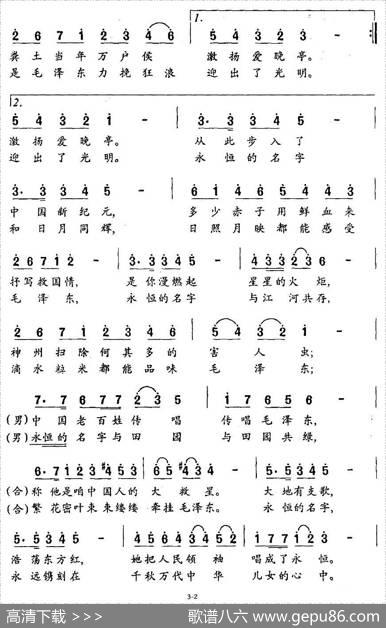 1.
2 6 7 1 2 3 4 6 | 5 4 3 2 3 - :||
粪土当年万户侯 激扬爱晚亭。
是毛泽东力挽狂浪 迎出了光明。
2.
5 4 3 2 1 - | 3. 3 3 4 5 - |
激扬爱晚亭。 从此步入了
迎出了光明。 永恒的名字
3. 3 3 4 5 - | 6 1 4 6 5 4 4 3 |
中国新纪元, 多少赤子用鲜血来
和日月同辉, 日照月映都能感受
2 6 7 1 2 - | 3. 3 3 4 5 - | 4 3 3 2 3 6 - |
抒写救国情, 是你漫燃起 星星的火炬,
毛泽东, 永恒的名字 与江河共存,
2 6 7 1 2 3 4 6 | 5 4 3 2 1 - |
神州扫除何其多的 害人虫;
滴水粒米都能品味 毛泽东;
7. 7 6 7 7 2 3 5 | 1 7 6 5 6 - |
(男)中国老百姓传唱 传唱毛泽东,
(男)永恒的名字与田园 与田园共绿,
6. 7 1 2 3 #4 5 3 | 6 5 #4 5 3 - | 5. 5 3 4 5 - |
(合)称他是咱中国人的 大救星。 大地有支歌,
(合)繁花密叶束束缕缕 牵挂毛泽东。 永恒的名字,
5. 5 3 4 5 - | 3 4 5 6 4 5 4 2 | 1 7 7 1 2 3 - |
浩荡东方红, 她把人民领袖 唱成了永恒。
永远镌刻在 千秋万代中华 儿女的心中。
3-2
高清下载 >>> 歌谱八六 www.gepu86.com